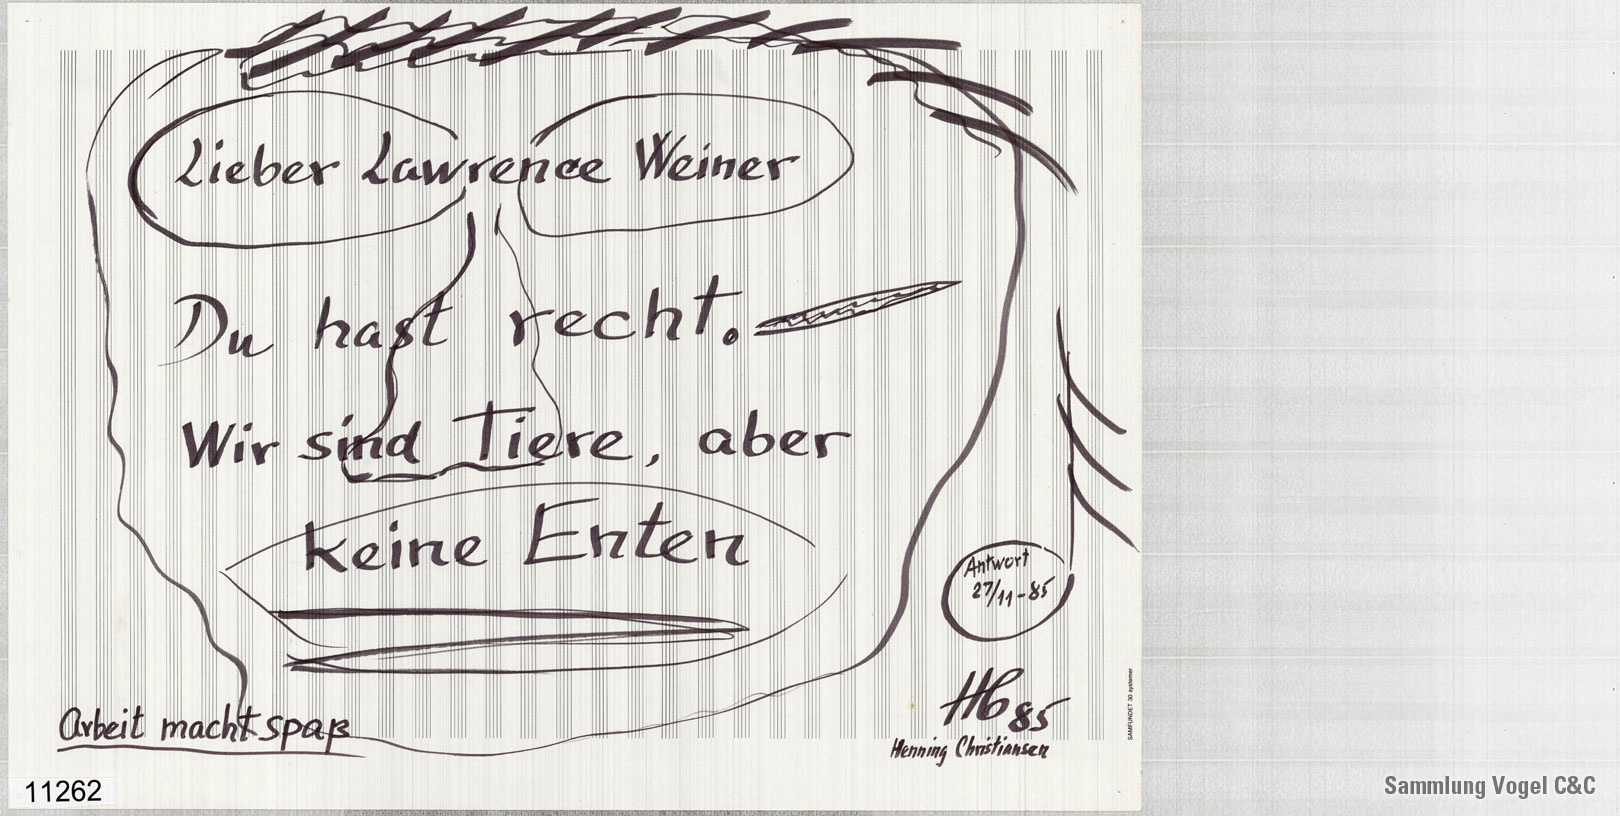 Lieber Lawrence Weiner
Du hast recht.
Wir sind Tiere, aber
keine Enten
Antwort
27/11-85
HC 85
Henning Christiansen
Arbeit macht spaß
SAMFUNDET 30 systemer
11262
Sammlung Vogel C&C